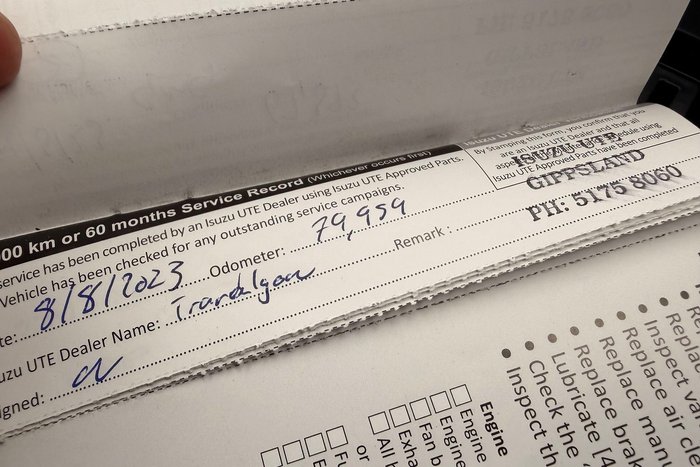 00 km or 60 months Service Record (Whichever occurs first)
service has been completed by an Isuzu UTE Dealer using Isuzu UTE Approved Parts.
Vehicle has been checked for any outstanding service campaigns.
te: 8/8/2023 Odometer: 79,959
Remark :
uzu UTE Dealer Name: Traralgon
igned:
By Stamping this form, you confirm that you
are an Isuzu UTE Dealer and that all
Isuzu UTE Approved Parts have been completed
ISUZU UTE
GIPPSLAND
PH: 5175 8060
Engine
Engine
Engine
Fan b
Exha
All h
or
Fu
Inspect th
Check the
Lubricate [4
Replace brak
Replace many
Replace air cle
Inspect var
Repla
Rep